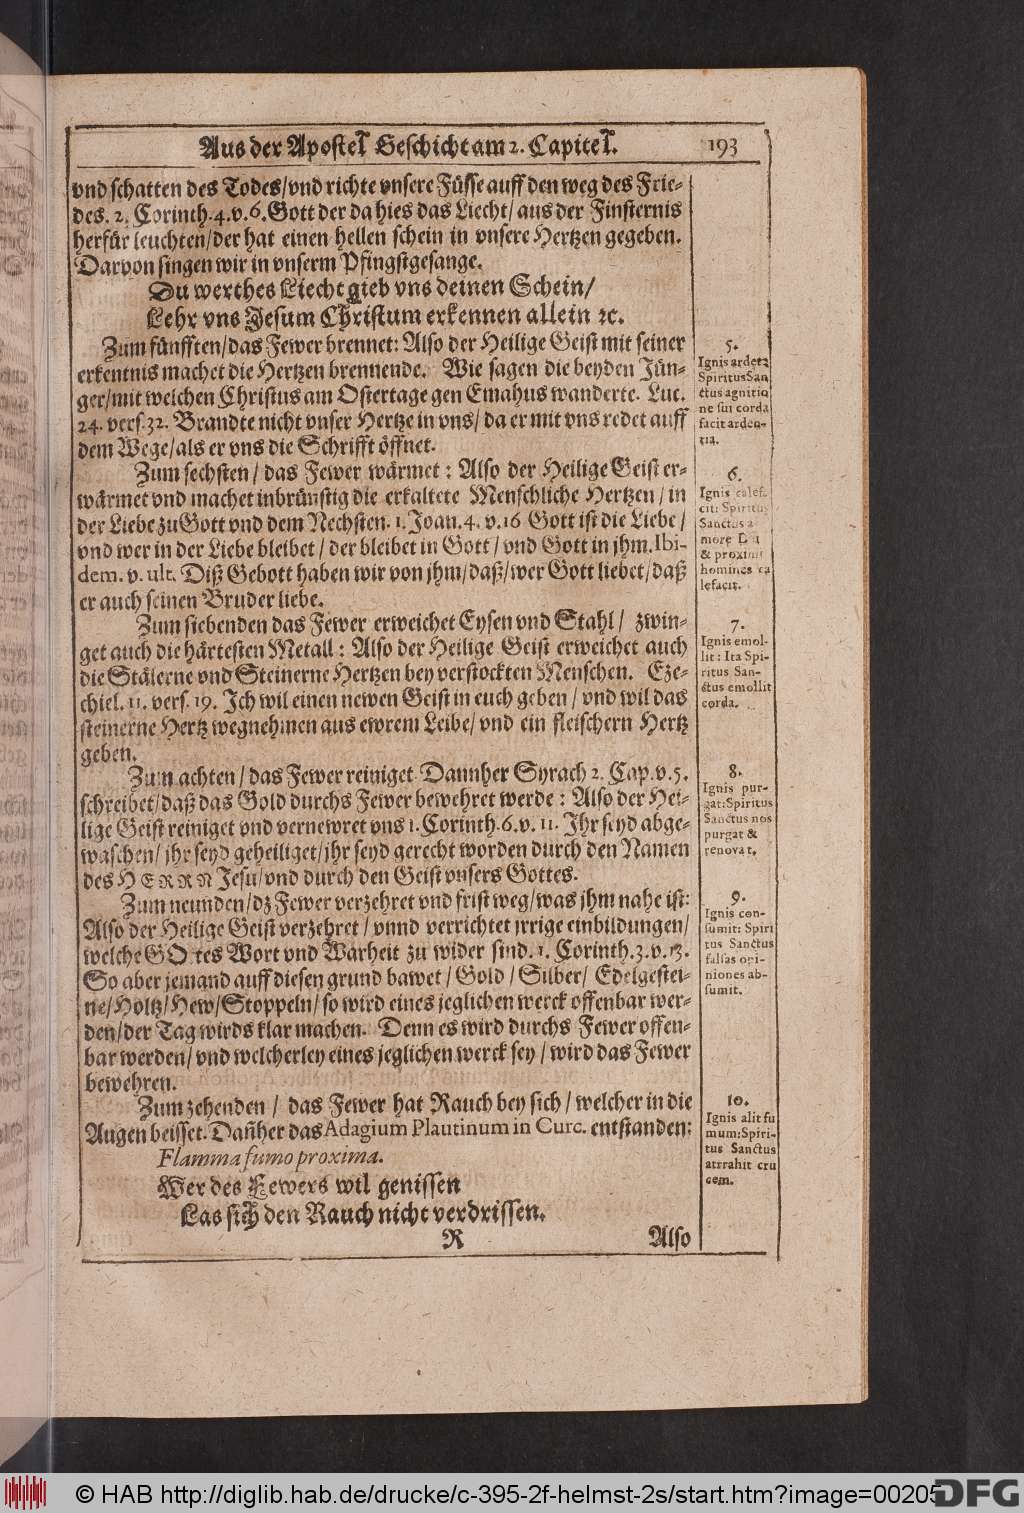 Aus der Apostel Geschicht am 2. Capitel. 193
vnd schatten des Todes/vnd richte vnsere Füsse auff den weg des Frie-
des. 2. Corinth.4.v.6. Gott der da hies das Liecht/ aus der Finsternis
herfür leuchten/der hat einen hellen schein in vnsere Hertzen gegeben.
Darvon singen wir in vnserm Pfingstgesange.
Du werthes Liecht gieb vns deinen Schein/
Lehr vns Jesum Christum erkennen allein ꝛc.
Zum fünfften/das Fewer brennet: Also der Heilige Geist mit seiner
erkentnis machet die Hertzen brennende. Wie sagen die beyden Jün-
ger/mit welchen Christus am Ostertage gen Emahus wanderte. Luc.
24. vers.32. Brandte nicht vnser Hertze in vns/ da er mit vns redet auff
dem Wege/als er vns die Schrifft öffnet.
Zum sechsten/ das Fewer wärmet: Also der Heilige Geist er-
wärmet vnd machet inbrünstig die erkaltete Menschliche Hertzen/ in
der Liebe zu Gott vnd dem Nechsten. 1. Joan. 4. v.16 Gott ist die Liebe/
vnd wer in der Liebe bleibet/ der bleibet in Gott/ vnd Gott in jhm. Ibi-
dem. v. ult. Diß Gebott haben wir von jhm/daß/wer Gott liebet/daß
er auch seinen Bruder liebe.
Zum siebenden das Fewer erweichet Eysen vnd Stahl/ zwin-
get auch die härtesten Metall: Also der Heilige Geist erweichet auch
die Stälerne vnd Steinerne Hertzen bey verstockten Menschen. Eze-
chiel. 11. vers. 19. Ich wil einen newen Geist in euch geben/ vnd wil das
steinerne Hertz wegnehmen aus ewrem Leibe/ vnd ein fleischern Hertz
geben.
Zum achten/ das Fewer reiniget. Dannher Syrach 2. Cap.v.5.
schreibet/daß das Gold durchs Fewer bewehret werde: Also der Hei-
lige Geist reiniget vnd vernewret vns 1. Corinth.6.v.11. Ihr seyd abge-
waschen/ jhr seyd geheiliget/jhr seyd gerecht worden durch den Namen
des HERRN Jesu/vnd durch den Geist vnsers Gottes.
Zum neunden/dz Fewer verzehret vnd frist weg/was jhm nahe ist:
Also der Heilige Geist verzehret/ vnnd verrichtet jrrige einbildungen/
welche GOttes Wort vnd Warheit zu wider sind. 1. Corinth.3.v.13.
So aber jemand auff diesen grund bawet/ Gold/ Silber/ Edelgestei-
ne/Holtz/Hew/Stoppeln/ so wird eines jeglichen werck offenbar wer-
den/der Tag wirds klar machen. Denn es wird durchs Fewer offen-
bar werden/ vnd welcherley eines jeglichen werck sey/ wird das Fewer
bewehren.
Zum zehenden/ das Fewer hat Rauch bey sich/ welcher in die
Augen beisset. Dañher das Adagium Plautinum in Curc. entstanden:
Flamma fumo proxima.
Wer des Fewers wil genissen
Las sich den Rauch nicht verdrissen.
R Also
5.
Ignis ardet:
Spiritus San
ctus agnitio
ne sui corda
facit arden-
tia.
6.
Ignis calef.
cit: Spiritus
Sanctus a
more
& proximi
homines ca
lefacit.
7.
Ignis emol-
lit: Ita Spi-
ritus San-
ctus emollit
corda.
8.
Ignis pur-
gat: Spiritus
Sanctus nos
purgat &
renovat.
9.
Ignis con-
sumit: Spiri
tus Sanctus
falsas opi-
niones ab-
sumit.
10.
Ignis alit fu
mum: Spiri-
tus Sanctus
attrahit cru
cem.
© HAB http://diglib.hab.de/drucke/c-395-2f-helmst-2s/start.htm?image=00205
DFG